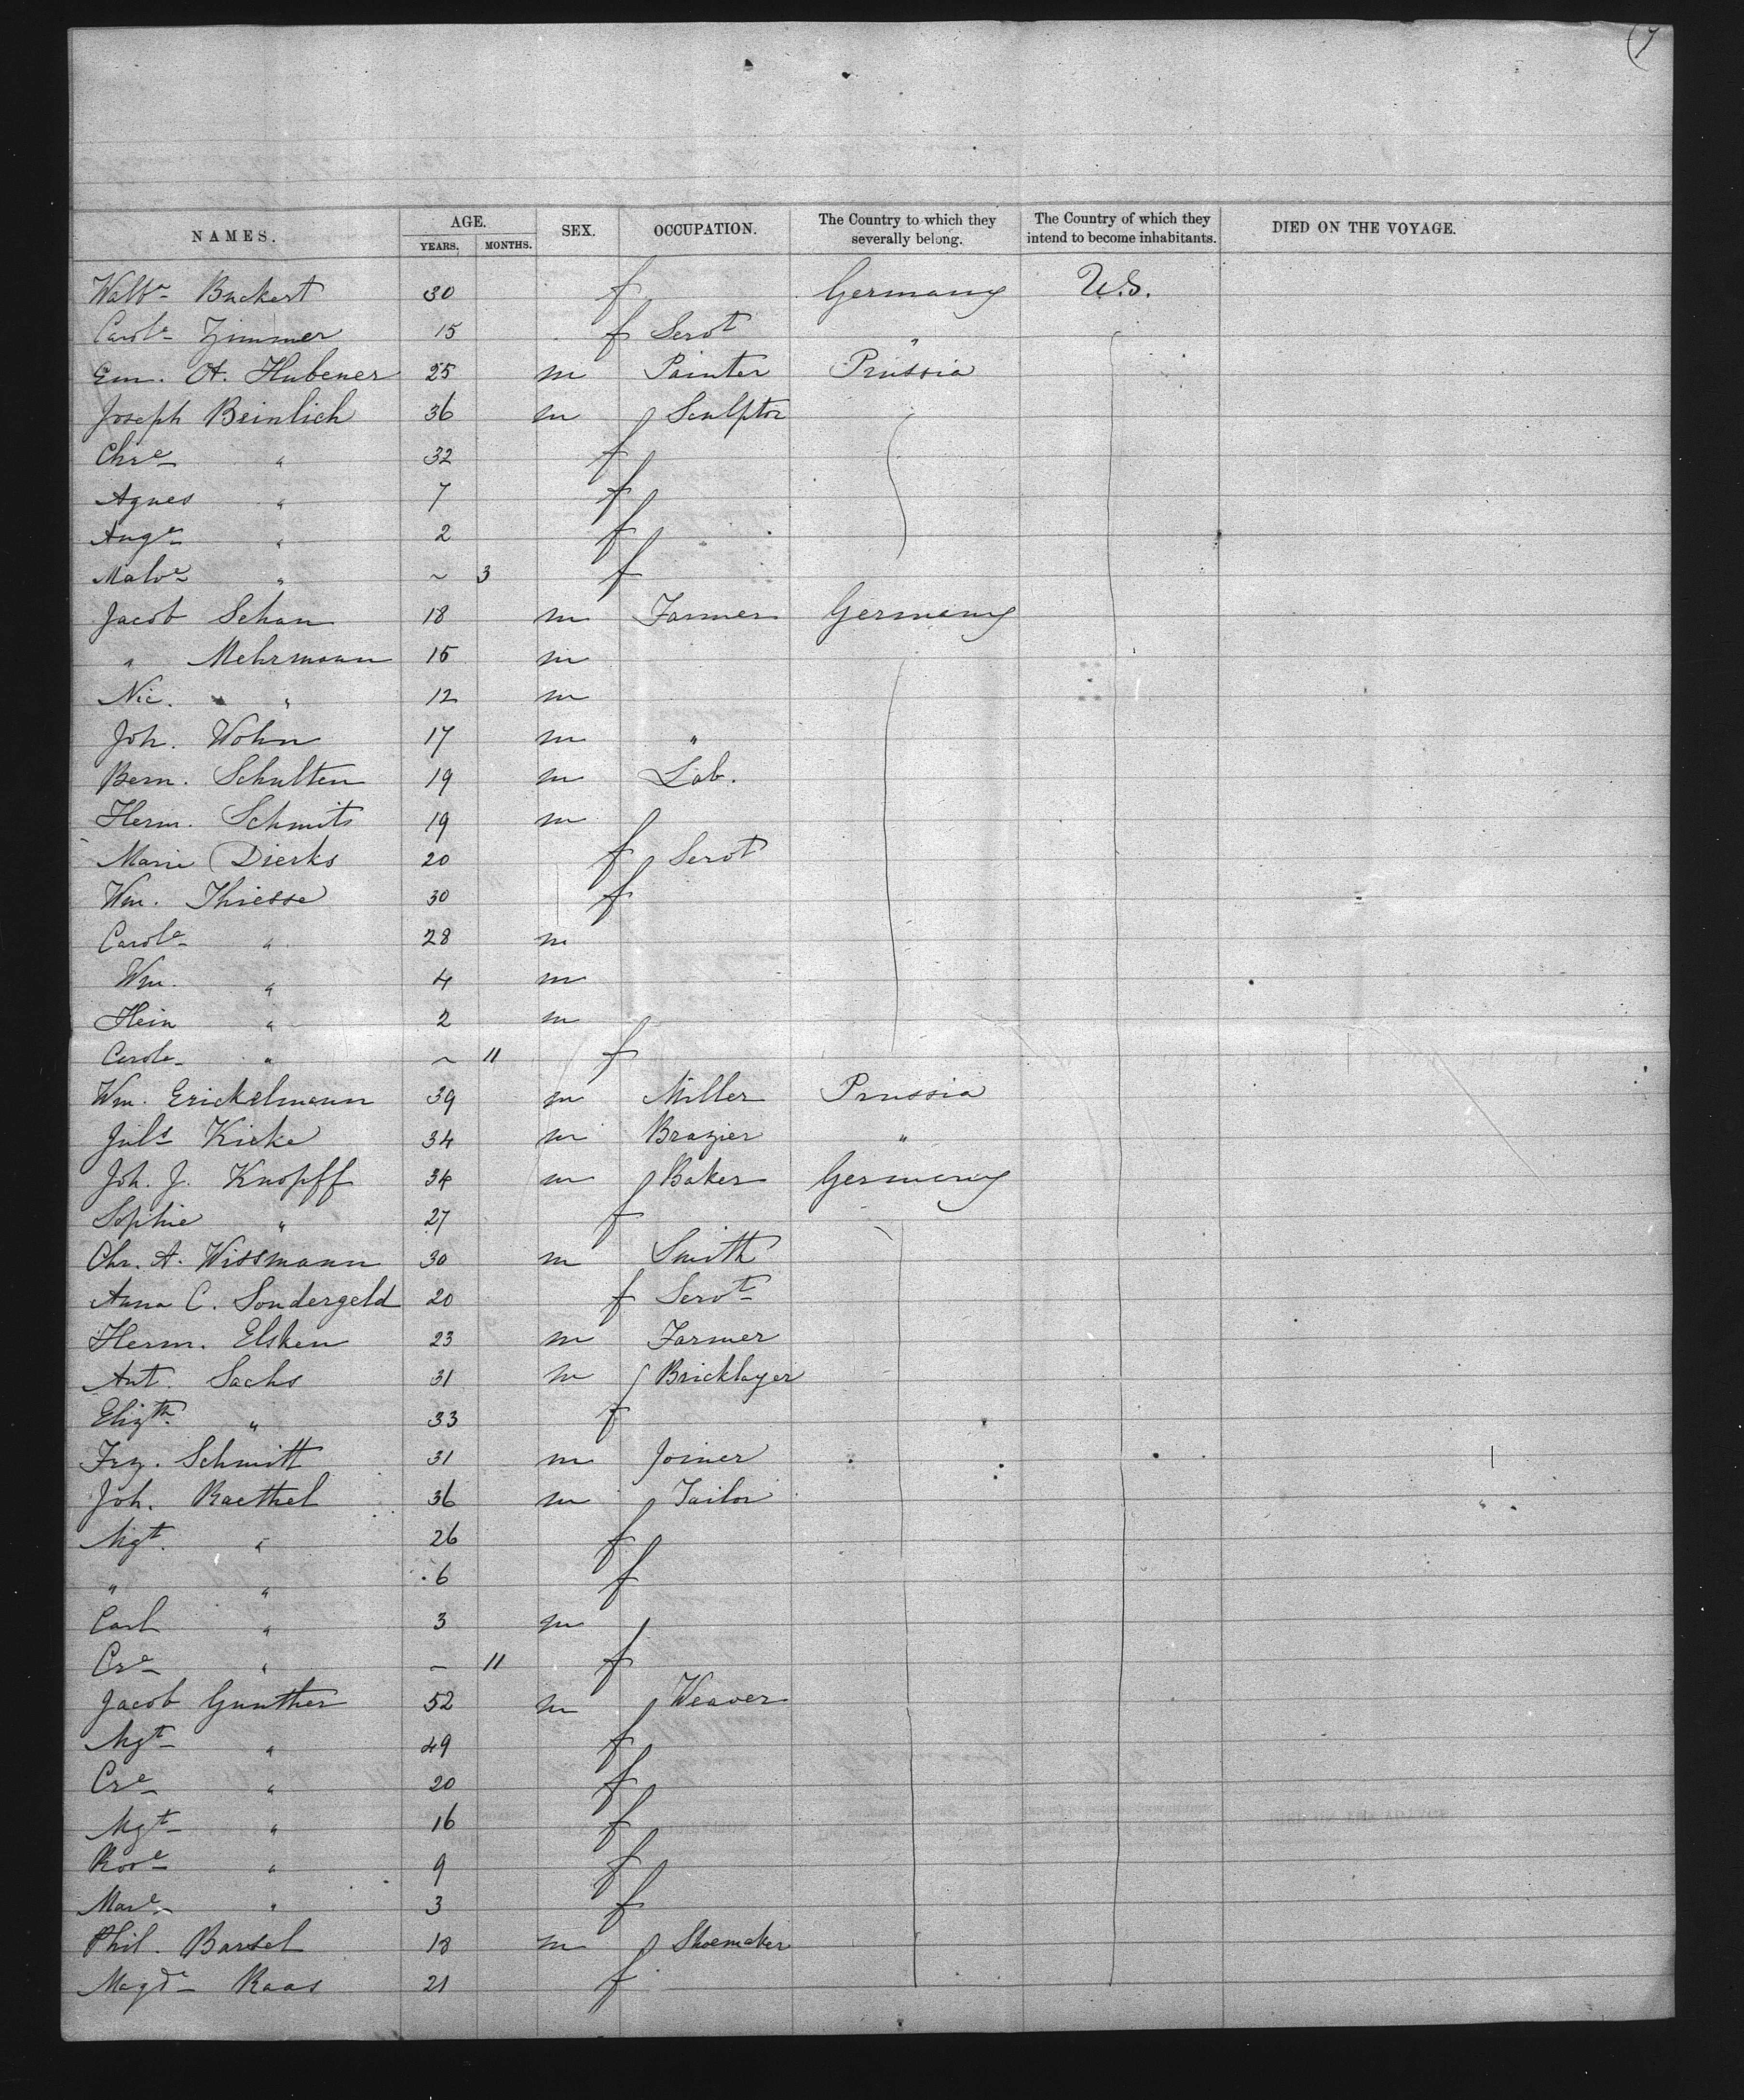 (7
NAMES. AGE. YEARS. MONTHS. SEX. OCCUPATION. The Country to which they severally belong. The Country of which they intend to become inhabitants. DIED ON THE VOYAGE.
Walbᵃ Buckert 30 f Germany U.S.
Carolᵉ Zimmer 15 f Servt "
Em. A. Hubener 25 m Painter Prussia
Joseph Beinlich 36 m Sculptor
Chrᵉ " 32 f
Agnes " 7 f
Augᵉ " 2 f
Malvᵉ " ~ 3 f
Jacob Schan 18 m Farmer Germany
" Mehrmann 15 m
Nic. " 12 m
Joh. Wohn 17 m "
Bern. Schulten 19 m Lab.
Herm. Schmits 19 m
Marie Dierks 20 f Servt
Wm. Thiesse 30 f
Carolᵉ " 28 m
Wm. " 4 m
Hein " 2 m
Carolᵉ " ~ 11 f
Wm. Erickelmann 39 m Miller Prussia
Julˢ Kieke 34 m Brazier "
Joh. J. Knopff 34 m Baker Germany
Sophie " 27 f
Chr. A. Wissmann 30 m Smith
Anna C. Sondergeld 20 f Servt
Herm. Elsken 23 m Farmer
Ant. Sachs 31 m Bricklayer
Elizth " 33 f
Frz. Schmitt 31 m Joiner
Joh. Raethel 36 m Tailor
Mgt. " 26 f
" " 6 f
Carl " 3 m
Crᵉ " ~ 11 f
Jacob Gunther 52 m Weaver
Mgt " 49 f
Crᵉ " 20 f
Mgt " 16 f
Rosᵉ " 9 f
Marᵉ " 3 f
Phil. Bartel 18 m Shoemaker
Magdᵉ Raas 21 f